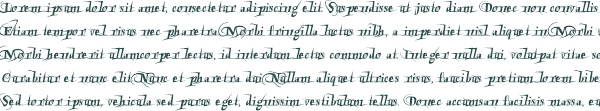 Lorem ipsum dolor sit amet, consectetur adipiscing elit. Suspendisse at justo diam. Donec non convallis
Etiam tempor vel risus nec pharetra. Morbi fringilla luctus nibh, a imperdiet nisl aliquet in. Morbi
Morbi hendrerit ullamcorper lectus, id interdum lectus commodo at. Integer nulla dui, volutpat vitae
Curabitur et nunc elit. Nunc et pharetra dui. Nullam aliquet ultrices risus, faucibus pretium lorem
Sed tortor ipsum, vehicula sed purus eget, dignissim vestibulum tellus. Donec accumsan facilisis massa,